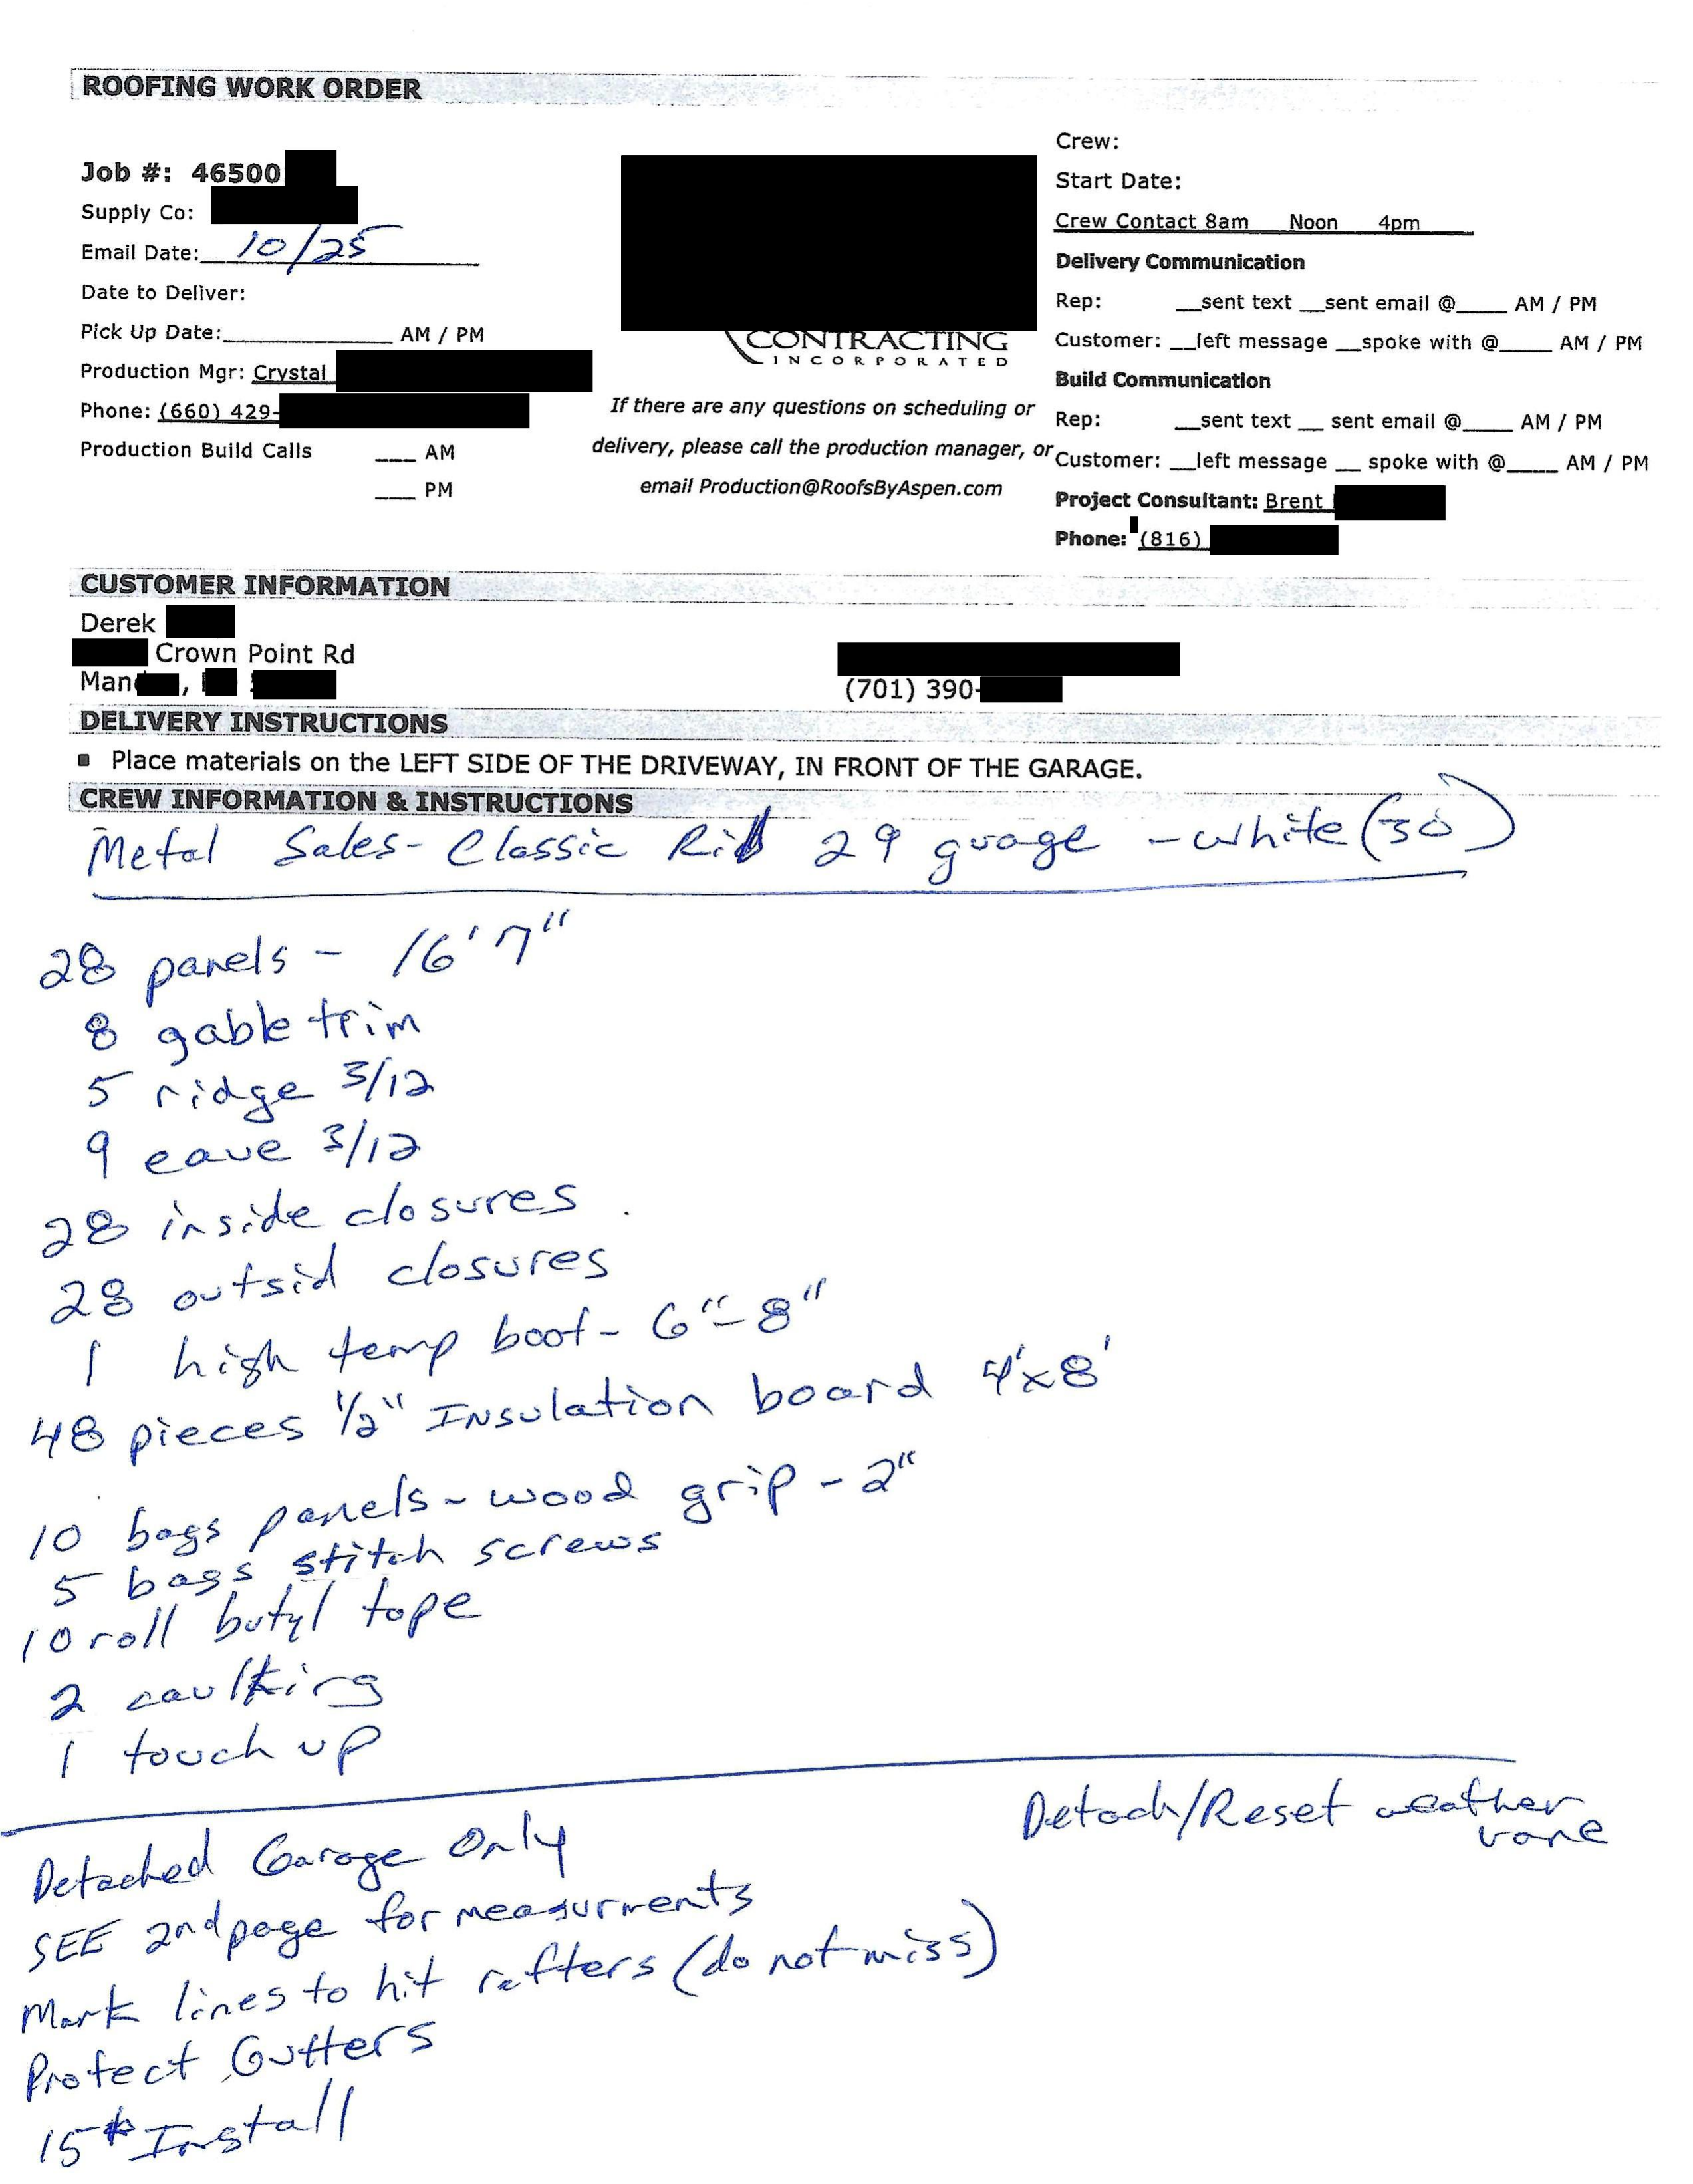 ROOFING WORK ORDER
Job #: 46500
Supply Co:
Email Date: 10/25
Date to Deliver:
Pick Up Date:____________ AM / PM
Production Mgr: Crystal
Phone: (660) 429-
Production Build Calls ___ AM
___ PM
CONTRACTING
INCORPORATED
If there are any questions on scheduling or
delivery, please call the production manager, or
email Production@RoofsByAspen.com
Crew:
Start Date:
Crew Contact 8am Noon 4pm
Delivery Communication
Rep: __sent text __sent email @____ AM / PM
Customer: __left message __spoke with @____ AM / PM
Build Communication
Rep: __sent text __ sent email @____ AM / PM
Customer: __left message __ spoke with @____ AM / PM
Project Consultant: Brent
Phone: (816)
CUSTOMER INFORMATION
Derek
Crown Point Rd
Man , 
(701) 390-
DELIVERY INSTRUCTIONS
▪ Place materials on the LEFT SIDE OF THE DRIVEWAY, IN FRONT OF THE GARAGE.
CREW INFORMATION & INSTRUCTIONS
Metal Sales - Classic Rib 29 guage - white (30)
28 panels - 16' 7"
8 gable trim
5 ridge 3/12
9 eave 3/12
28 inside closures
28 outsid closures
1 high temp boot - 6" - 8"
48 pieces 1/2" Insulation board 4'x8'
10 bags panels - wood grip - 2"
5 bags stitch screws
10 roll butyl tape
2 caulking
1 touch up
Detach/Reset weather
vane
Detached Garage Only
SEE 2nd page for measurments
Mark lines to hit rafters (do not miss)
Protect Gutters
15* Install